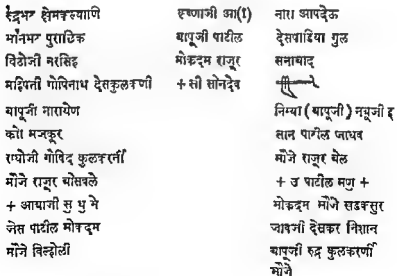 रुद्रभट क्षेमकल्याणि
भानभट पुराटिक
विठोजी नरसिह
महिपती गोपिनाथ देसकुलकर्णी
बापूजी नारायेण
को। मजकूर
राघोजी गोविद कुलकरनी
मौजे राजूर बोसवले
+ आयाजी सु धु मे
जेस पाटील मोकदम
मौजे विल्होली
कृष्णाजी आ(।)
बापूजी पाटील
मोकदम राजूर
+ सी सोनदेव
नारा आपदेऊ
देसपांडिया गुल
सनाबाद
निम्बा (बापूजी) नथूजी इ
सान पाटील जाधव
मौजे राजूर बेल
+ उ पाटील मणु +
मोकदम मौजे सडकसुर
जावजी देसकर निशान
बापूजी रुद्र कुलकरणी
मौजे